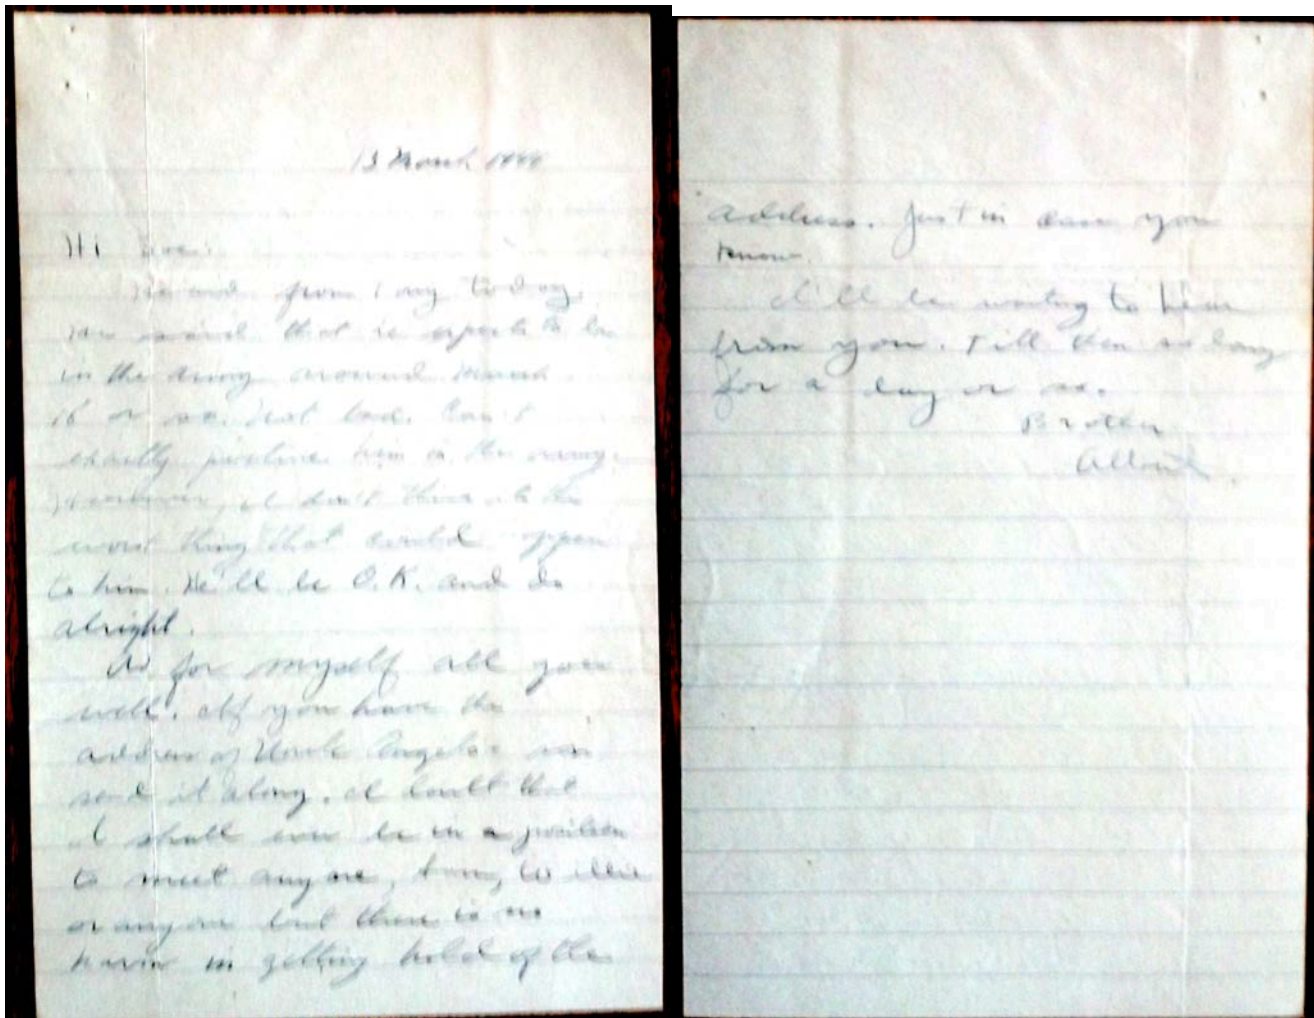 13 March 1944
Hi
from today.
said that he expects to be
in the army around March
16 or so. Not bad. Can't
exactly picture him in the army.
However, I don't think its the
worst thing that could appen
to him. He'll be O.K. and do
alright.
As for myself all goes
well. If you have the
address of Uncle Angelo's
send it along. I doubt that
I shall ever be in a position
to meet anyone,
or anyone but there is no
harm in getting hold of the
address. Just in case you
know.
I'll be waiting to hear
from you. Till then so long
for a day or so.
Brother
Albert.